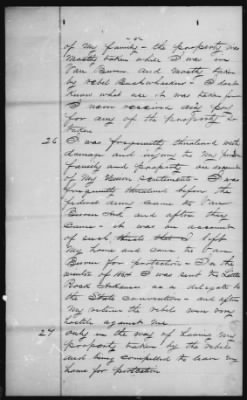 of my family - the property was
mostly taken while I was in
Van Buren and mostly taken
by rebel Bushwhackers - I dont
know what use it was taken for
I never received any pay
for any of the property
taken
26 I was frequently threatened with
damage and injury to my person
family and property on account
of my Union sentiments - I was
frequently threatened before the
federal army came to Van
Buren Ark and after they
came - it was on account
of such threats that I left
my home and came to Van
Buren for protection - In the
winter of 1864 I was sent to Little
Rock Arkansas as a delegate to
the State Convention - and after
my return the rebels were very
hostile against me
27 only in the way of having my
property taken by the rebels
and being compelled to leave my
home for protection